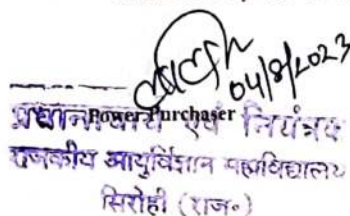 04/8/2023
Power Purchaser
प्रधानाचार्य एवं नियंत्रक
राजकीय आयुर्विज्ञान महाविद्यालय
सिरोही (राज॰)